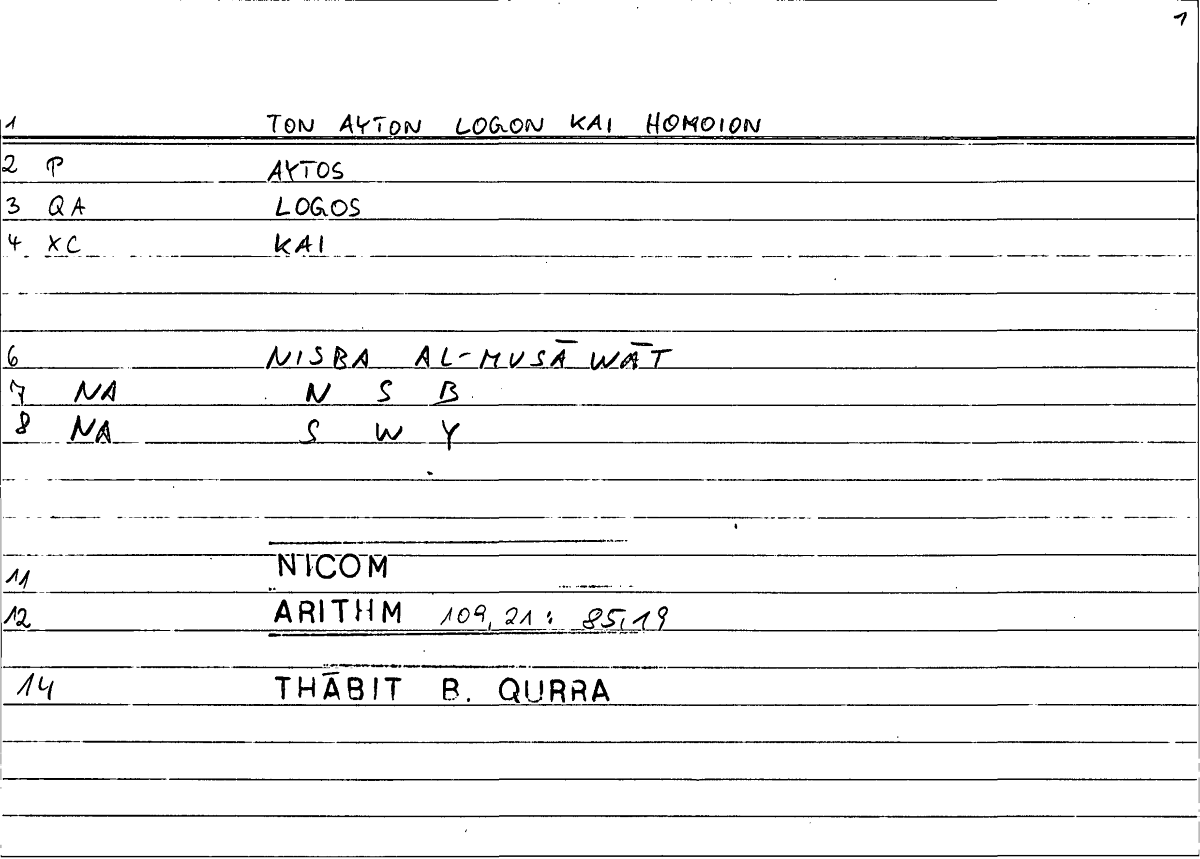 1
1 TON AYTON LOGON KAI HOMOION
2 P AYTOS
3 QA LOGOS
4 XC KAI
6 NISBA AL-MUSĀWĀT
7 NA N S B
8 NA S W Y
11 NICOM
12 ARITHM 109,21: 85,19
14 THĀBIT B. QURRA